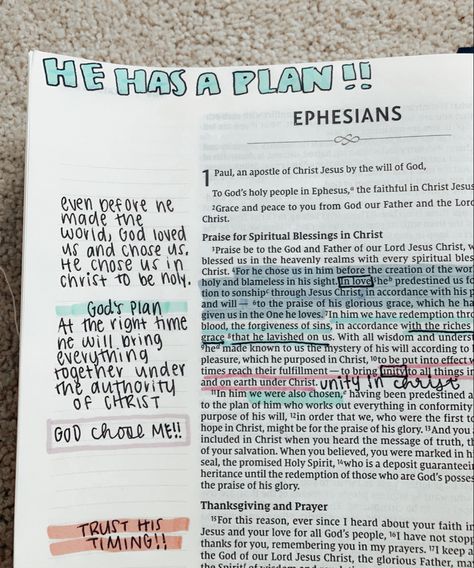 HE HAS A PLAN!!
EPHESIANS
even before he
made the
world, God loved
us and chose us.
He chose us in
christ to be holy.
God's Plan
At the right time
he will bring
everything
together under
the authority
of CHRIST
GOD chose ME!!
TRUST HIS
TIMING!!
1 Paul, an apostle of Christ Jesus by the will of God,
To God's holy people in Ephesus,a the faithful in Christ Jesus
2Grace and peace to you from God our Father and the Lord
Christ.
Praise for Spiritual Blessings in Christ
3Praise be to the God and Father of our Lord Jesus Christ, w
blessed us in the heavenly realms with every spiritual bless
Christ. 4For he chose us in him before the creation of the wor
holy and blameless in his sight. In love he predestined us fo
tion to sonship through Jesus Christ, in accordance with his p
and will — 6to the praise of his glorious grace, which he ha
given us in the One he loves. 7In him we have redemption thr
blood, the forgiveness of sins, in accordance with the riches
grace 8that he lavished on us. With all wisdom and underst
9he made known to us the mystery of his will according to
pleasure, which he purposed in Christ, 10to be put into effect w
times reach their fulfillment — to bring unity to all things in
and on earth under Christ. unity in christ
11In him we were also chosen, having been predestined a
to the plan of him who works out everything in conformity
purpose of his will, 12in order that we, who were the first to
hope in Christ, might be for the praise of his glory. 13And you a
included in Christ when you heard the message of truth, th
of your salvation. When you believed, you were marked in hi
seal, the promised Holy Spirit, 14who is a deposit guaranteei
heritance until the redemption of those who are God's posses
the praise of his glory.
Thanksgiving and Prayer
15For this reason, ever since I heard about your faith in
Jesus and your love for all God's people, 16I have not stopp
thanks for you, remembering you in my prayers. 17I keep a
the God of our Lord Jesus Christ, the glorious Father, ma
the Spirit of wisdom and